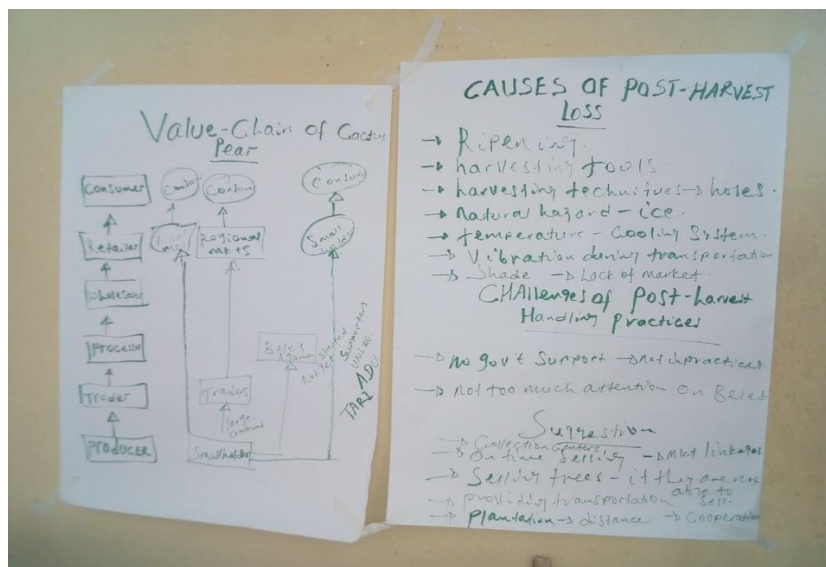 Value-Chain of Cactus
Pear
Consumer
Retailer
Processo
Trader
PRODUCER
Consum
Regional
mkts
Traders
large
amount
Smallholder
Consum
Small
Beles
TARI
ADU
CAUSES OF POST-HARVEST
LOSS
→ Ripening.
→ harvesting tools.
→ harvesting techniques → holes.
→ natural hazard - ice.
→ temperature - Cooling System.
→ Vibration during transportation
→ Shade → Lack of market.
CHAllenges of Post-harvest
Handling practices
→ no gov't Support →
→ not too much attention on Beles
Suggestion
→ Collection Centers
→ On time Selling → Mkt linkages
→ Selling trees - if they are not
able to
sell.
→ providing transportation
→ Plantation → distance → Cooperation